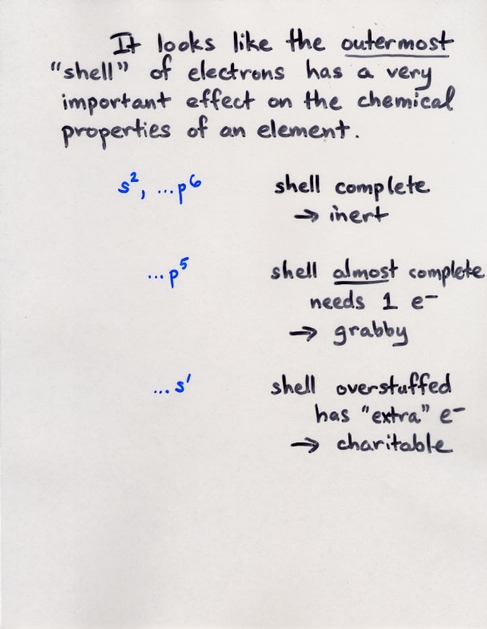 It looks like the outermost
"shell" of electrons has a very
important effect on the chemical
properties of an element.
s², ...p⁶ shell complete
→ inert
...p⁵ shell almost complete
needs 1 e⁻
→ grabby
...s¹ shell overstuffed
has "extra" e⁻
→ charitable